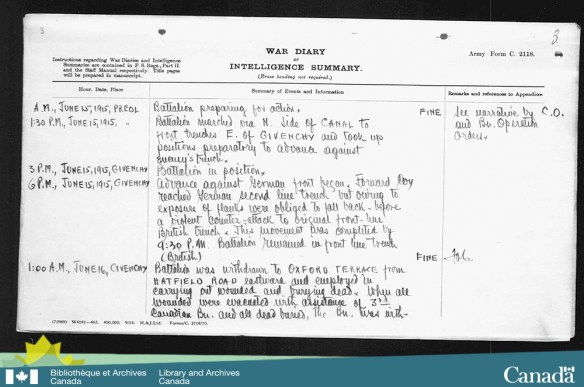 3
3
WAR DIARY
OR
INTELLIGENCE SUMMARY.
(Erase heading not required.)
Army Form C. 2118.
Instructions regarding War Diaries and Intelligence
Summaries are contained in F. S. Regs., Part II
and the Staff Manual respectively. Title pages
will be prepared in manuscript.
Hour, Date, Place
Summary of Events and Information
Remarks and references to Appendices
A.M., JUNE 15, 1915, PREOL
Battalion preparing for action.
FINE
See narrative by C.O.
and Bn. Operation
Orders.
1:30 P.M., JUNE 15, 1915, "
Battalion marched via N. Side of CANAL to
front trenches E. of GIVENCHY and took up
positions preparatory to advance against
enemy's trench.
3 P.M., JUNE 15, 1915, GIVENCHY
Battalion in position.
6 P.M., JUNE 15, 1915, GIVENCHY
Advance against German front began. Forward Coy
reached German second line trench but owing to
exposure of flanks were obliged to fall back before
a violent counter-attack to original front-line
British trench. This movement was completed by
9:30 P.M. Battalion remained in front line trench
(British)
FINE
1:00 A.M., JUNE 16, GIVENCHY
Battalion was withdrawn to OXFORD TERRACE from
HATFIELD ROAD eastward and employed in
carrying out wounded and burying dead. When all
wounded were evacuated with assistance of 3rd
Canadian Bn. and all dead buried, the Bn. was with-
Forms/C. 2118/10.
Bibliothèque et Archives
Canada
Library and Archives
Canada
Canada